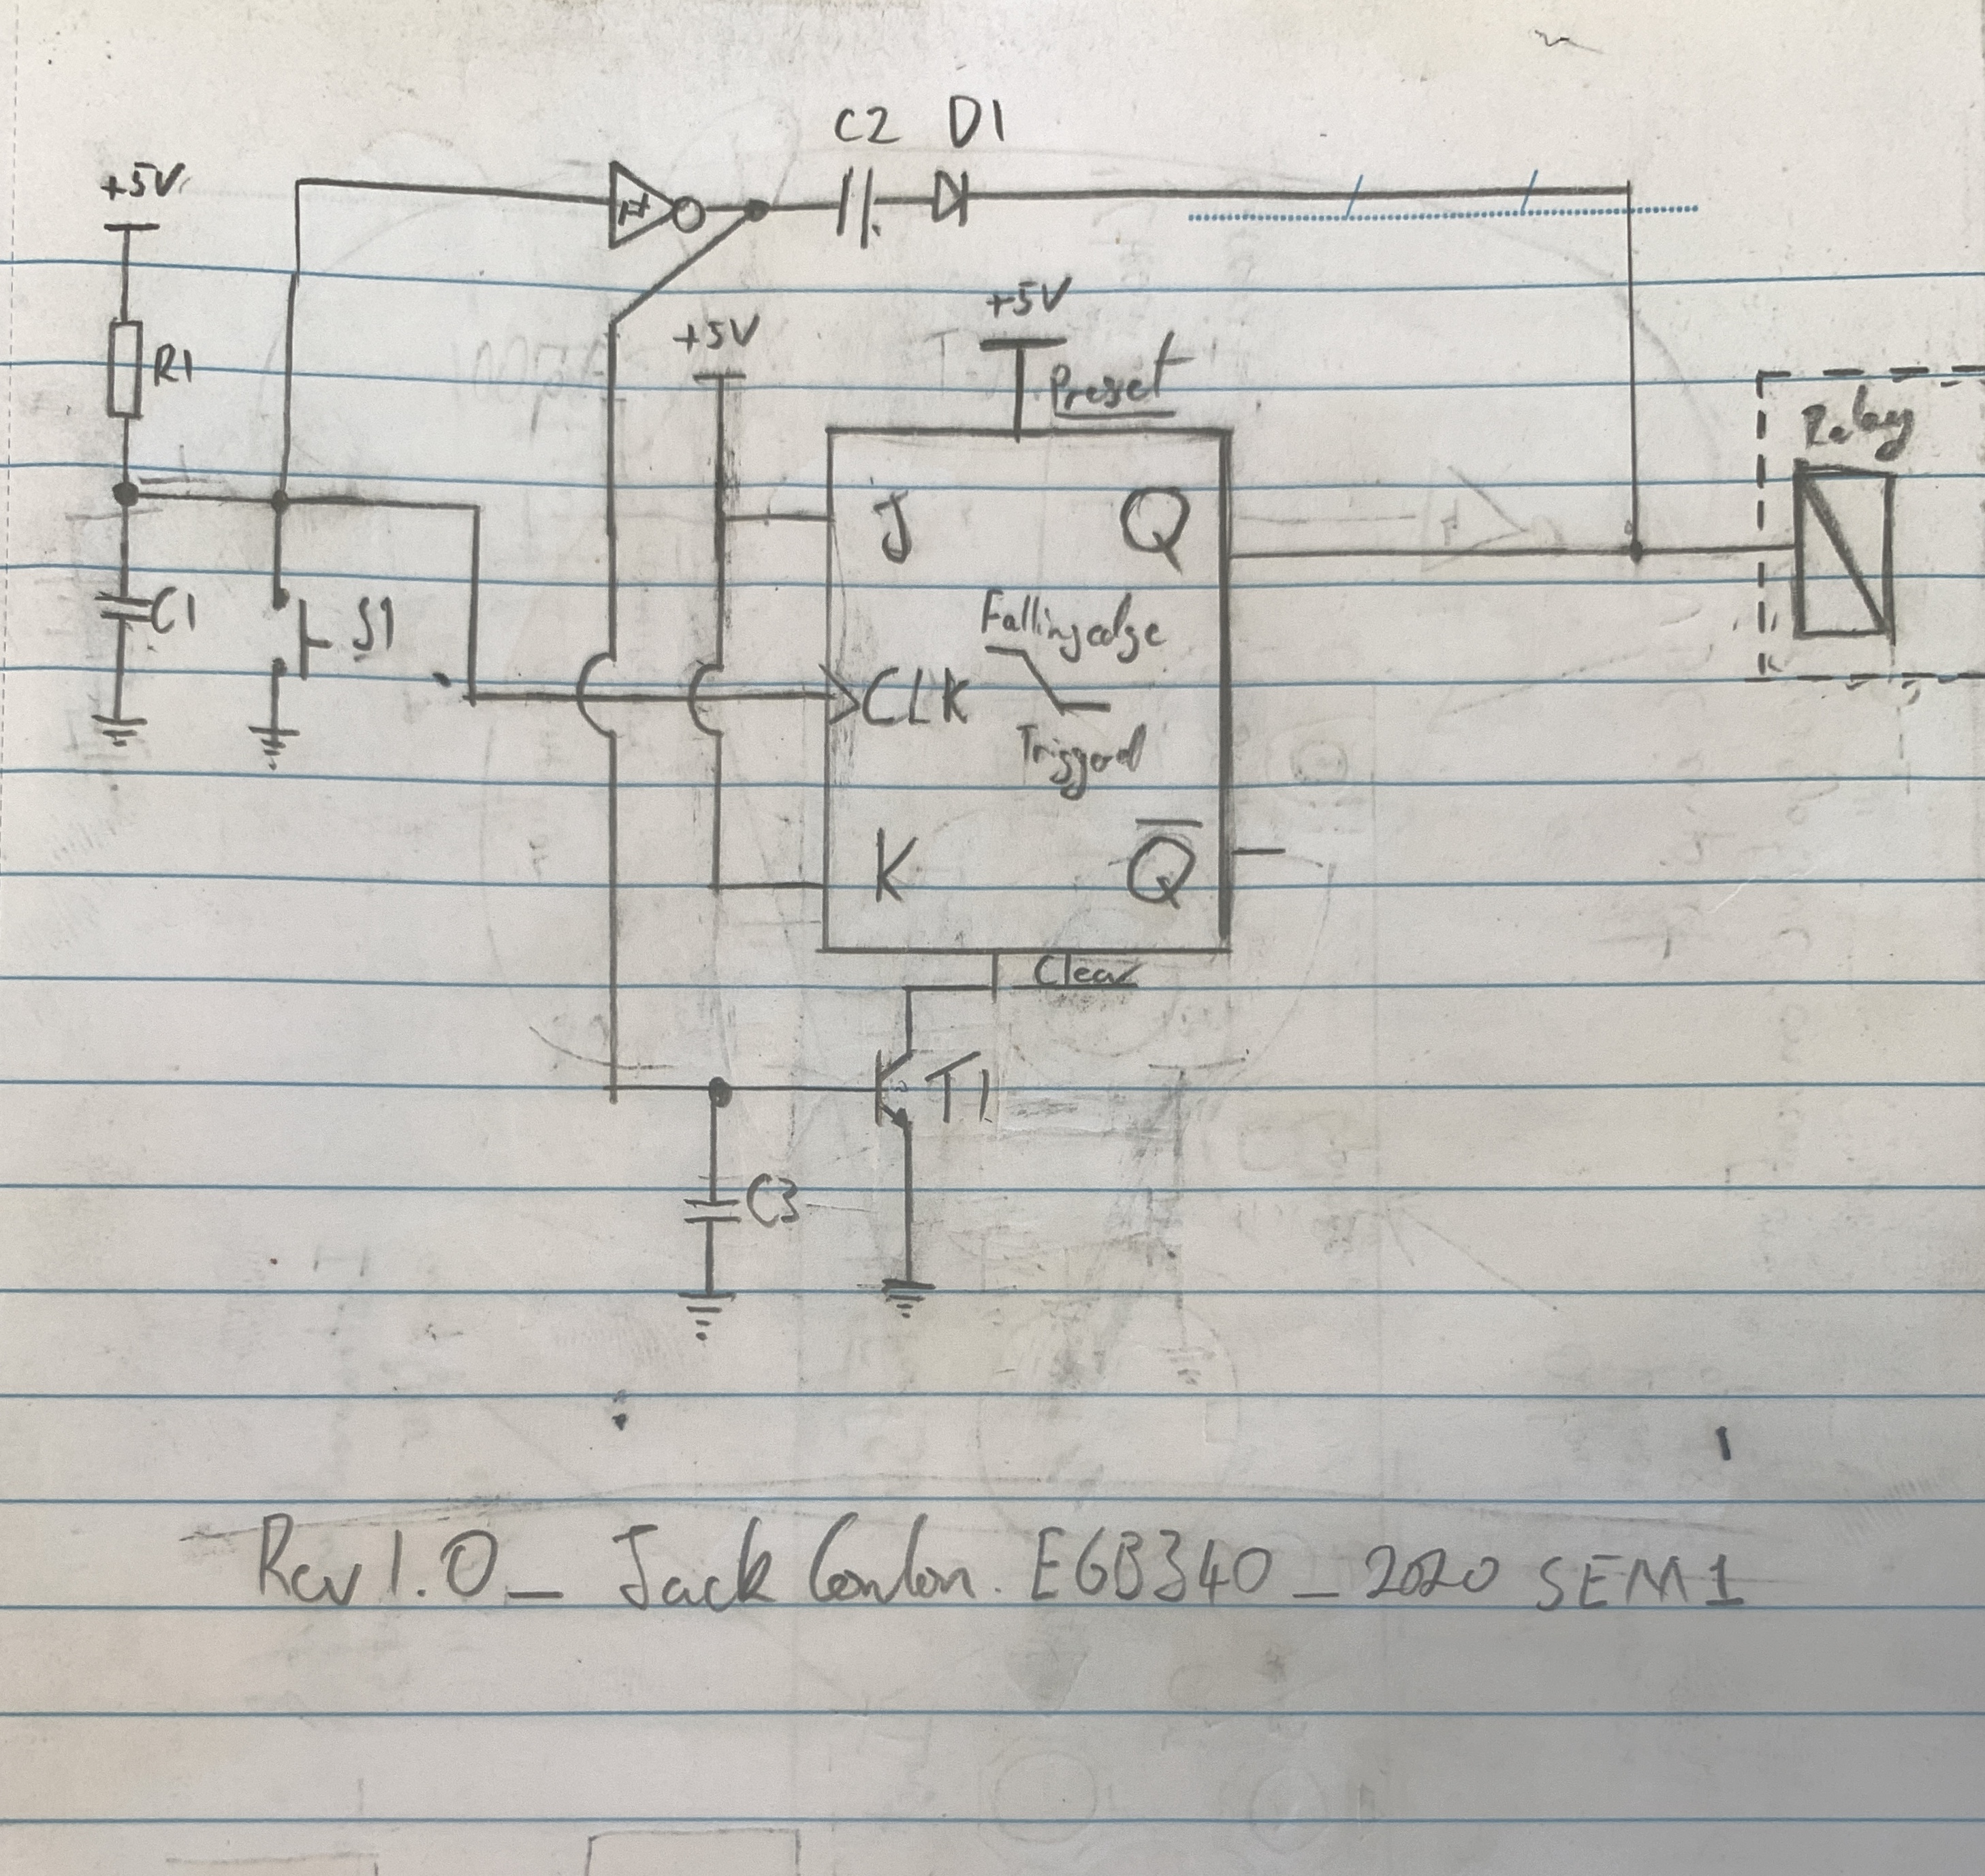 C2 D1
+5V
R1
+5V
+5V
Preset
Relay
J Q
C1
S1
Falling edge
CLK
Triggered
K Q̅
Clear
T1
C3
Rev 1.0 _ Jack Conlon. EGB340 _ 2020 SEM1